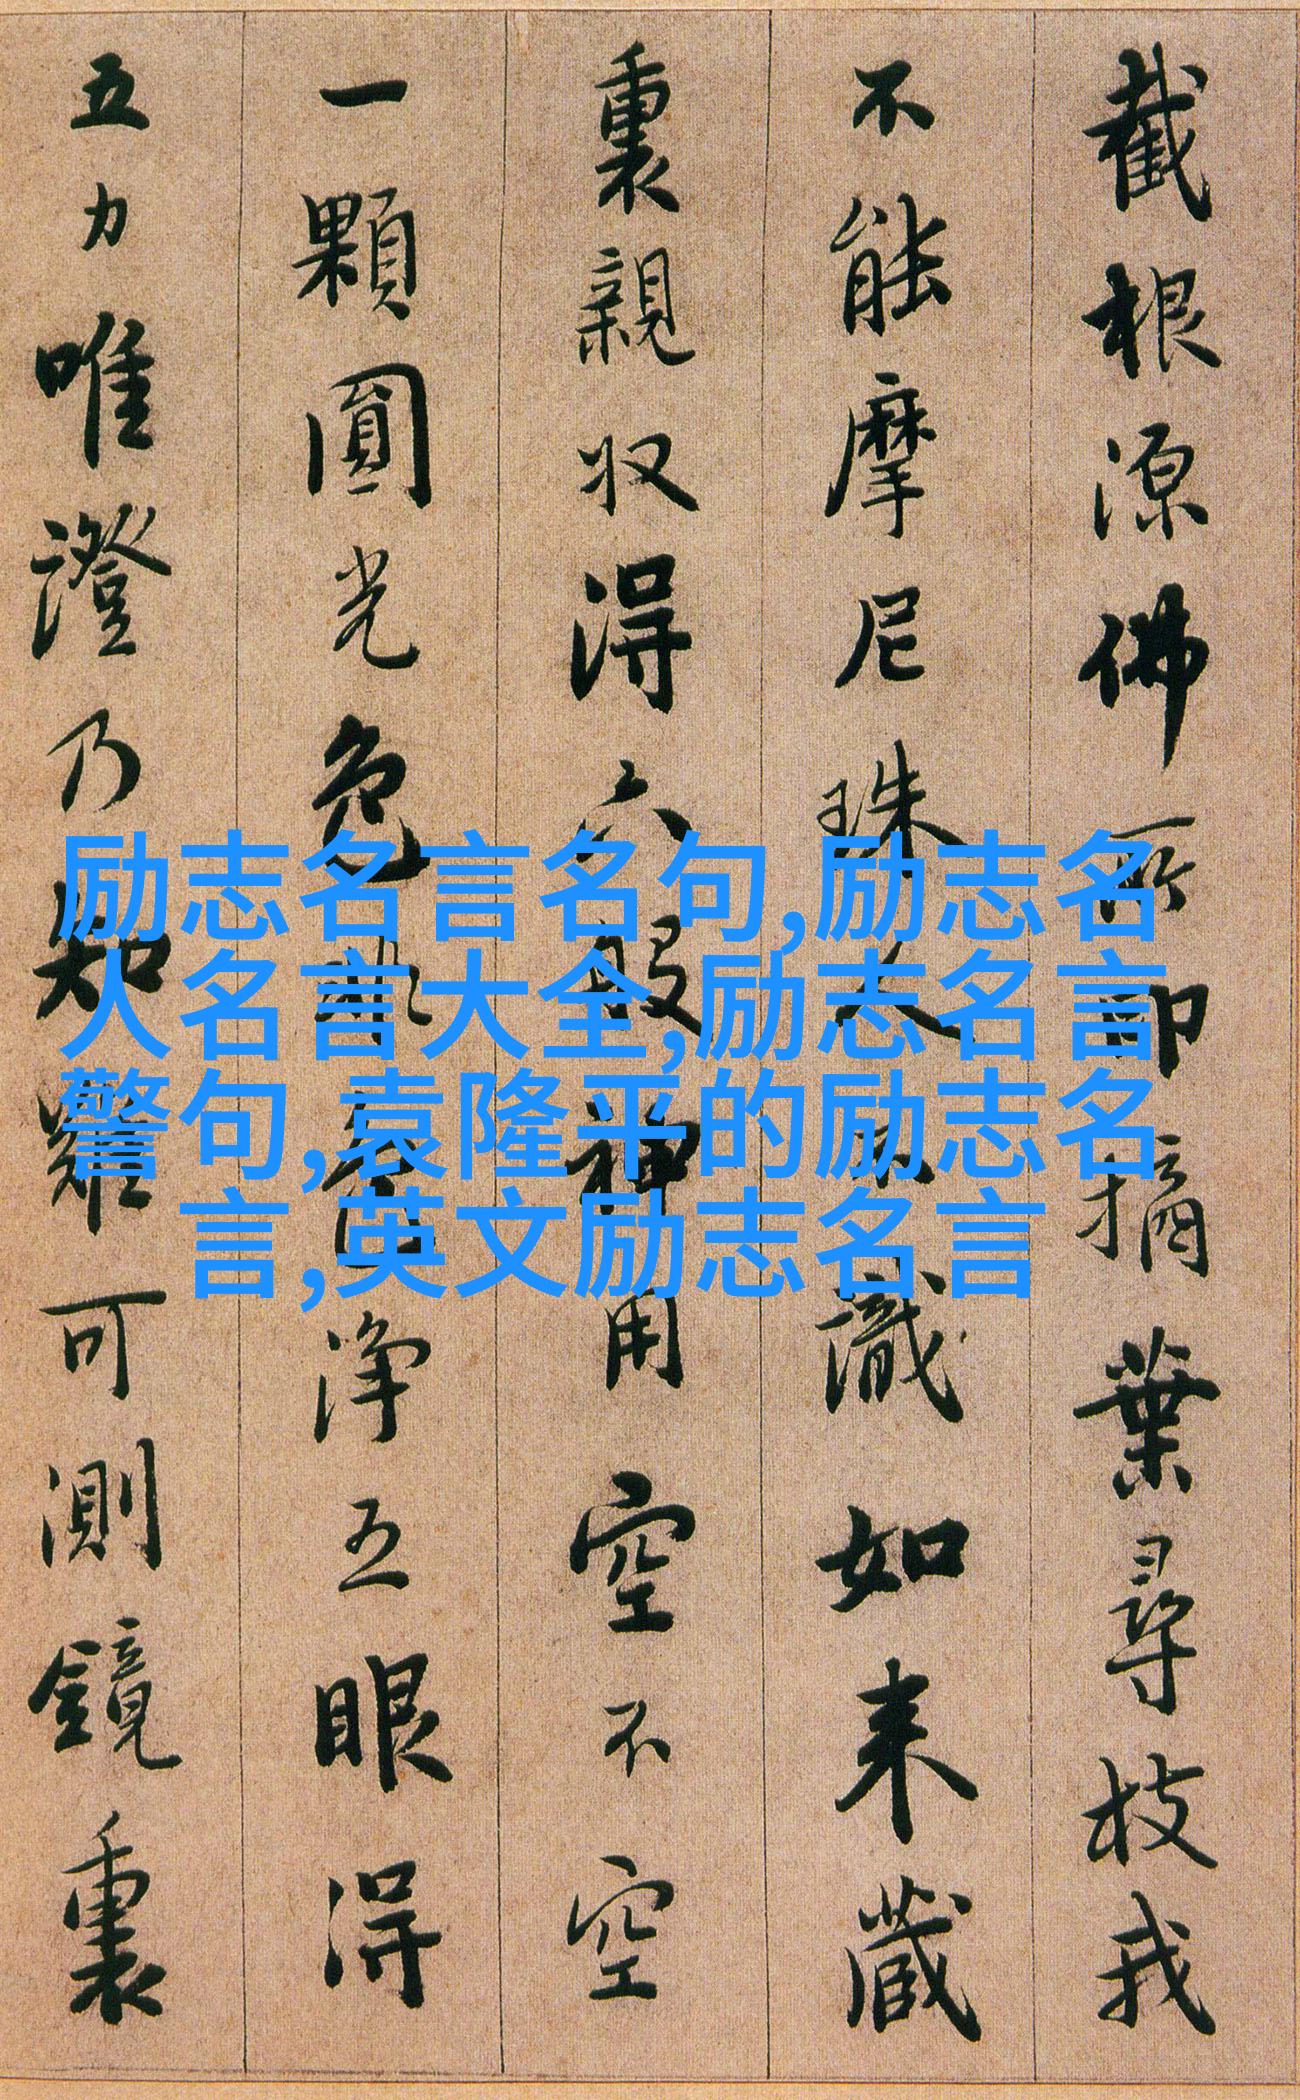 截根源佛所印摘葉尋枝我
不能摩尼珠人不識如來藏
裏親収得六般神用空不空
一顆圓光色非色淨五眼得
五力唯證乃知難可測鏡裏
励志名言名句,励志名
人名言大全,励志名言
警句,袁隆平的励志名
言,英文励志名言